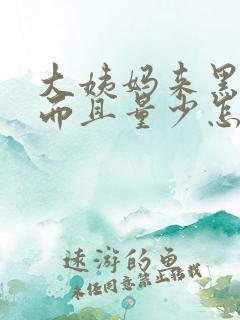 大姨妈来黑
而且量少怎
远游的鱼
未经同意禁止转载